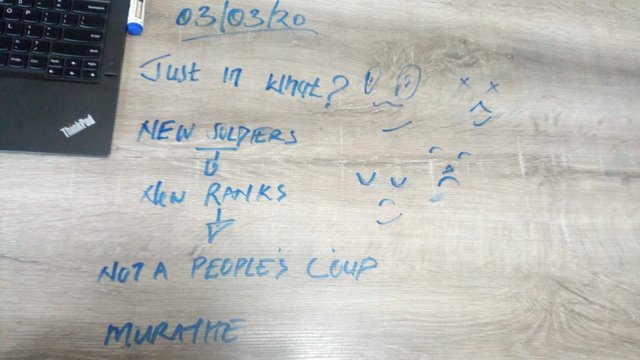 03/03/20
Just in what?
NEW SOLDIERS
NEW RANKS
NOT A PEOPLE'S COUP
MURATHE
ThinkPad